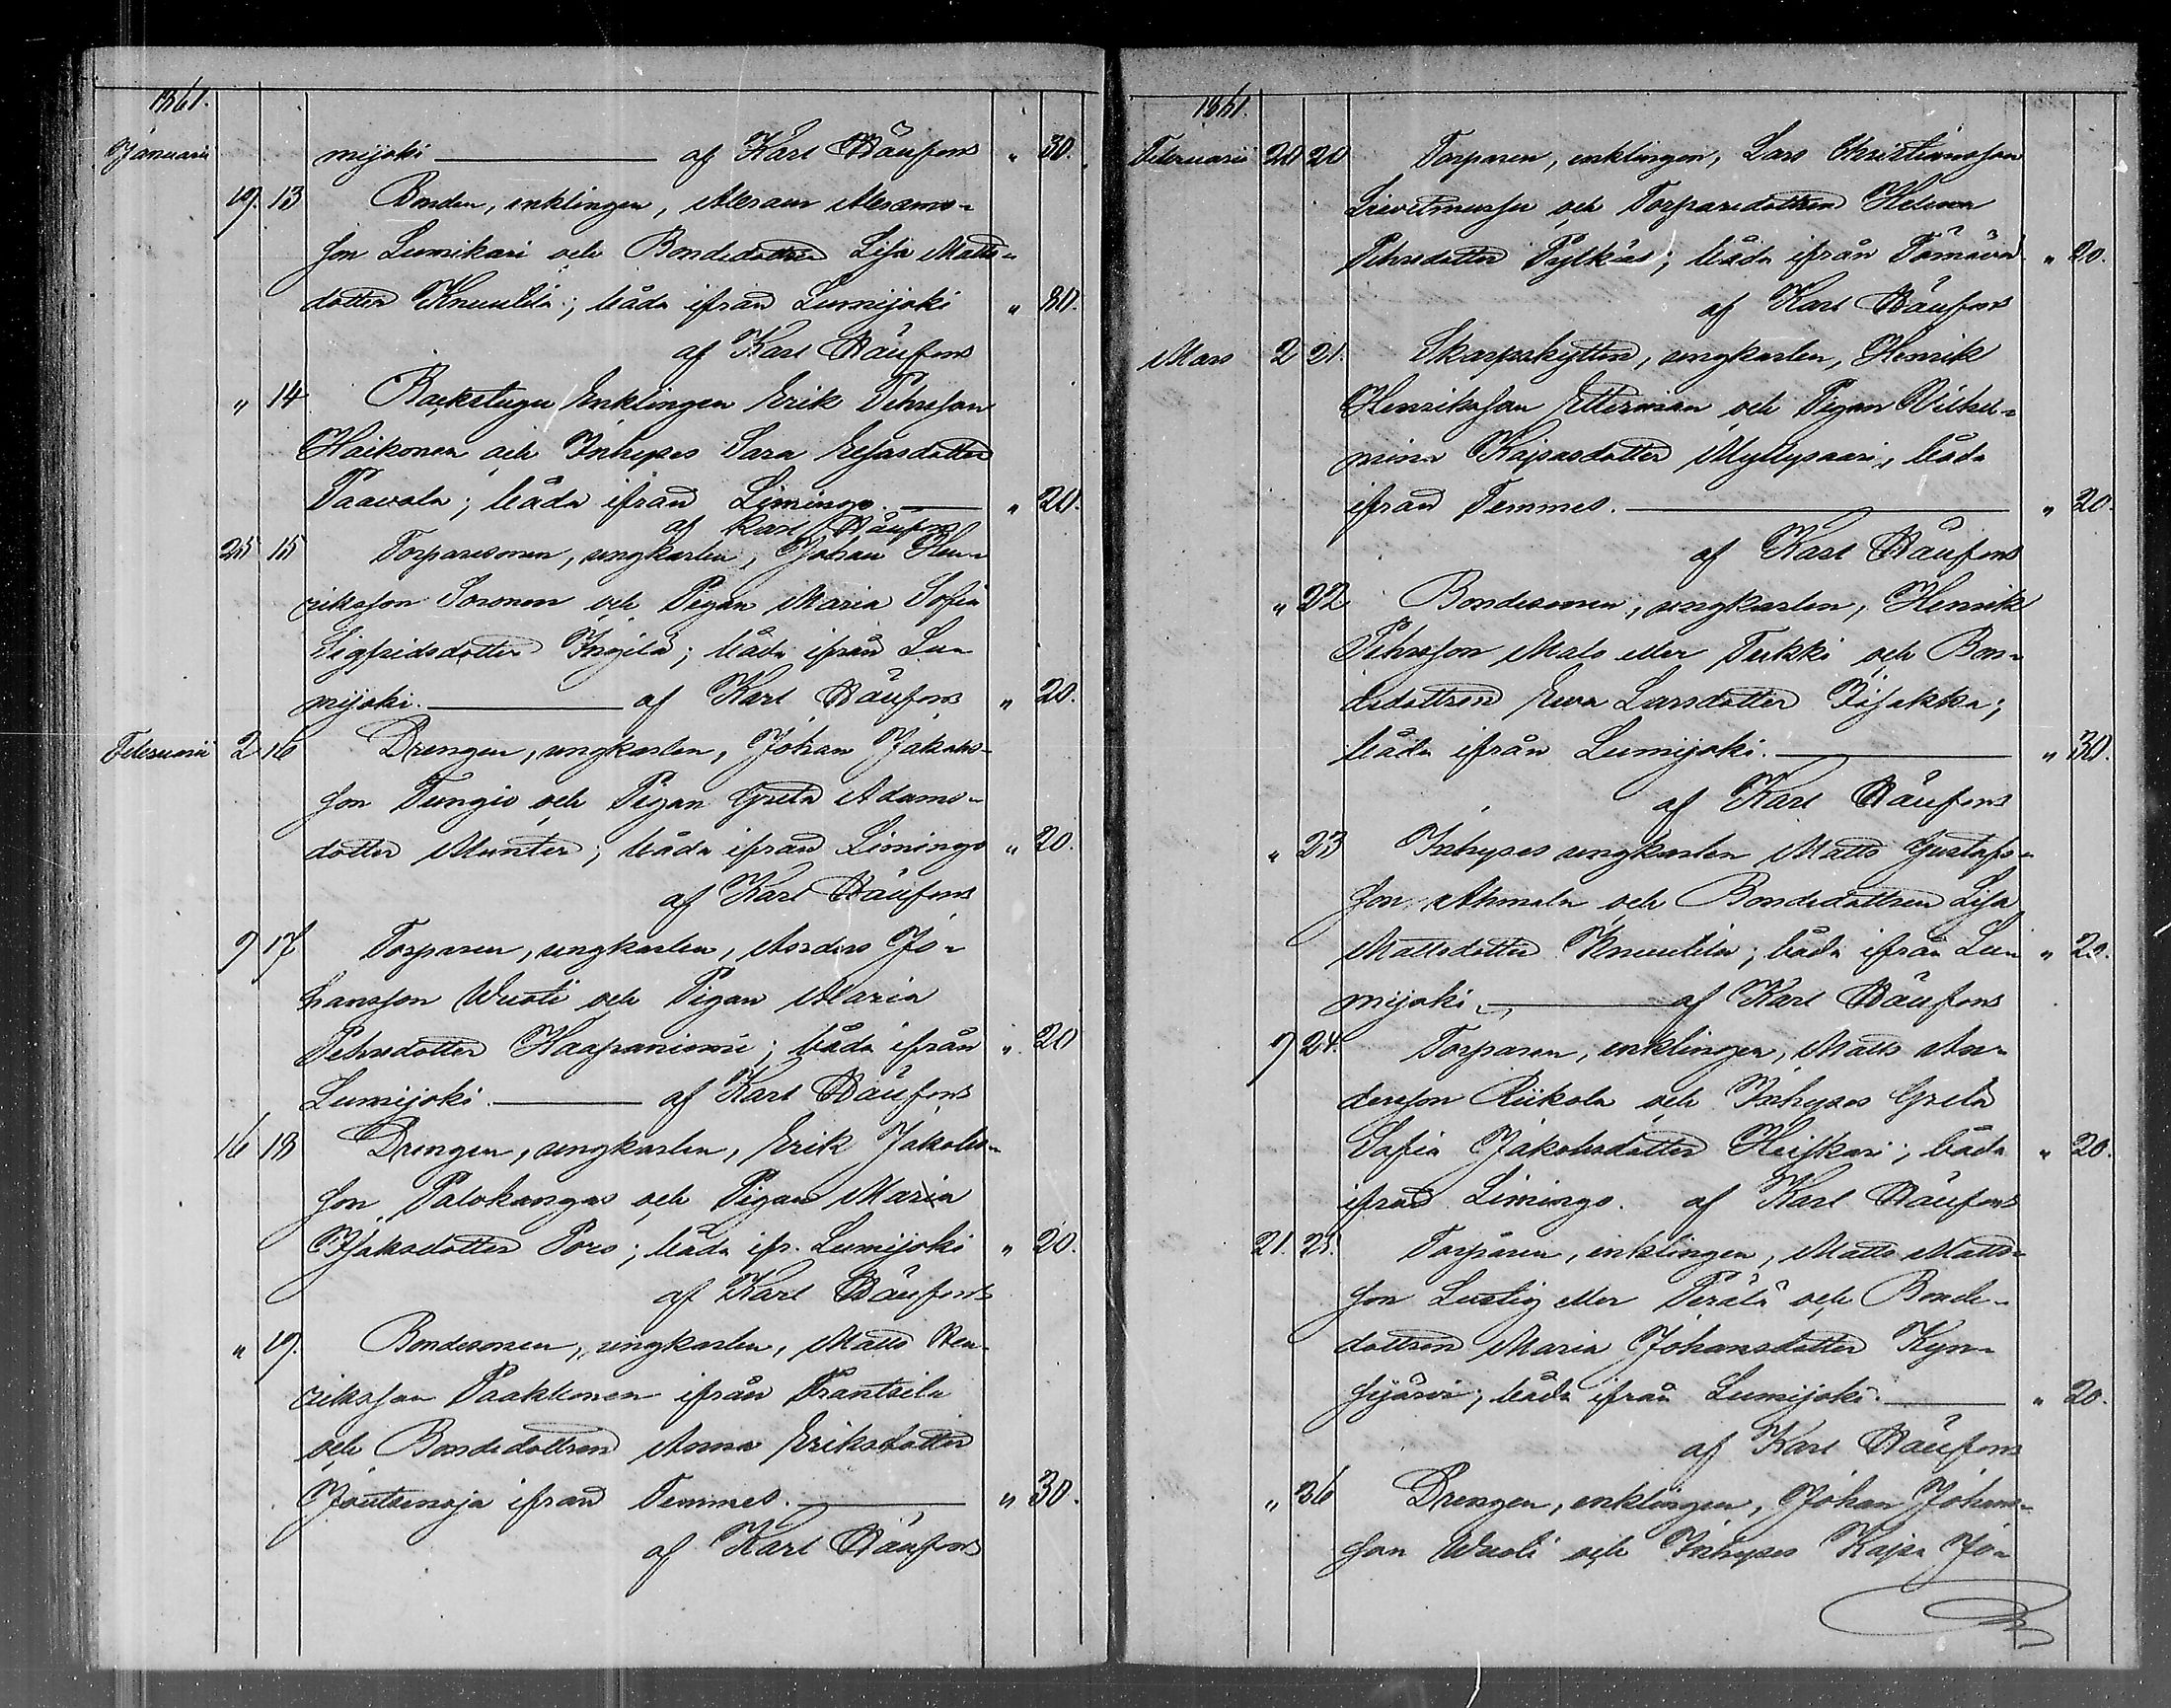 1861.
Januarii mijoki af Karl Häufons " 30.
19. 13 Bonden, enklingen, Abram Abrams-
son Lumikari och Bondedottren Lisa Matts-
dotter Knuutila; båda ifrån Lumijoki " 80.
af Karl Häufons
" 14 Backstugu Enklingen Erik Pehrsson
Haikonen och Inhyses Sara Esasdotter
Paavola; båda ifrån Limingo. " 20.
af Karl Häufons
25 15 Torparesonen, ungkarlen, Johan Hen-
riksson Soronen och Pigan Maria Sofia
Sigfridsdotter Ingilä; båda ifrån Lu-
mijoki. af Karl Häufons " 20.
Februarii 2 16 Drengen, ungkarlen, Johan Jakobs-
son Tungio och Pigan Greta Adams-
dotter Munter; båda ifrån Limingo " 20.
af Karl Häufons
9 17 Torparen, ungkarlen, Anders Jo-
hansson Wuoti och Pigan Maria
Pehrsdotter Haapaniemi; båda ifrån " 20
Lumijoki. af Karl Häufons
16 18 Drengen, ungkarlen, Erik Jakobs-
son Palokangas och Pigan Maria
Isaksdotter Poro; båda ifr. Lumijoki " 20.
af Karl Häufons
" 19. Bondesonen, ungkarlen, Matts Hen-
riksson Paakkonen ifrån Frantsila
och Bondedottren Anna Eriksdotter
Joutsenoja ifrån Temmes. " 30.
af Karl Häufons
1861.
Februarii 20 20 Torparen, enklingen, Lars Christiansson
och Torparedottren Helena
Pehrsdotter Pylkäs; båda ifrån Tömävä " 20.
af Karl Häufons
Mars 2 21. Skarpskytten, ungkarlen, Henrik
Henriksson Etterman och Pigan Vilhel-
mina Kajsasdotter Myllysaari, båda
ifrån Temmes. " 20.
af Karl Häufons
" 22 Bondesonen, ungkarlen, Henrik
Pehrsson Malo eller Turkki och Bon-
dedottren Eva Larsdotter Iisakka;
båda ifrån Lumijoki. " 30.
af Karl Häufons
" 23 Inhyses ungkarlen Matts Gustafs-
son Ahmala och Bondedottren Lisa
Mattsdotter Knuutila; båda ifrån Lu- " 20.
mijoki. af Karl Häufons
7 24. Torparen, enklingen, Matts An-
dersson Riikola och Inhyses Greta
Sofia Jakobsdotter Heiskari; båda " 20.
ifrån Limingo. af Karl Häufons
21. 25. Torparen, enklingen, Matts Matts-
son Lustig eller Perälä och Bonde-
dottren Maria Johansdotter Kyn-
sijärvi; båda ifrån Lumijoki. " 20.
af Karl Häufons
" 26 Drengen, enklingen, Johan Johans-
son Wuoti och Inhyses Kajsa Jo-